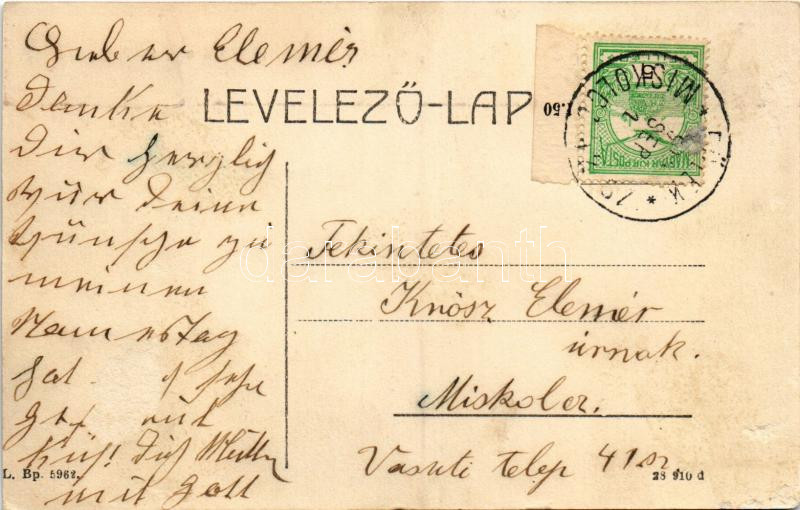 Lieber Elemér
Danke
Dir herzlich
für Deine
Wünsche zu
meinen
Namenstag
hat sehr
Kuß! Dich Mutter
mit Gott
LEVELEZŐ-LAP
1.50
MAGYAR KIR. POSTA
MISKOLCZ
Tekintetes
Knősz Elemér
úrnak.
Miskolcz.
Vasuti telep 41 sz.
L. Bp. 5962.
28 910 d
darabanth